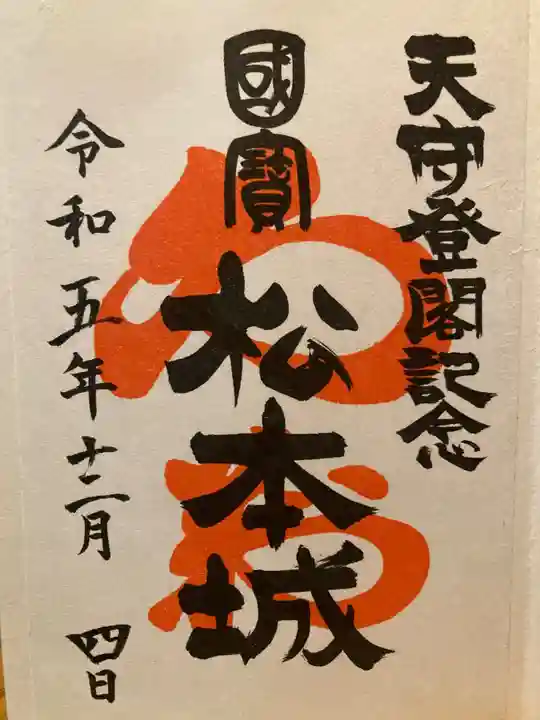 天守登閣記念
國寶 松本城
令和五年十二月 四日